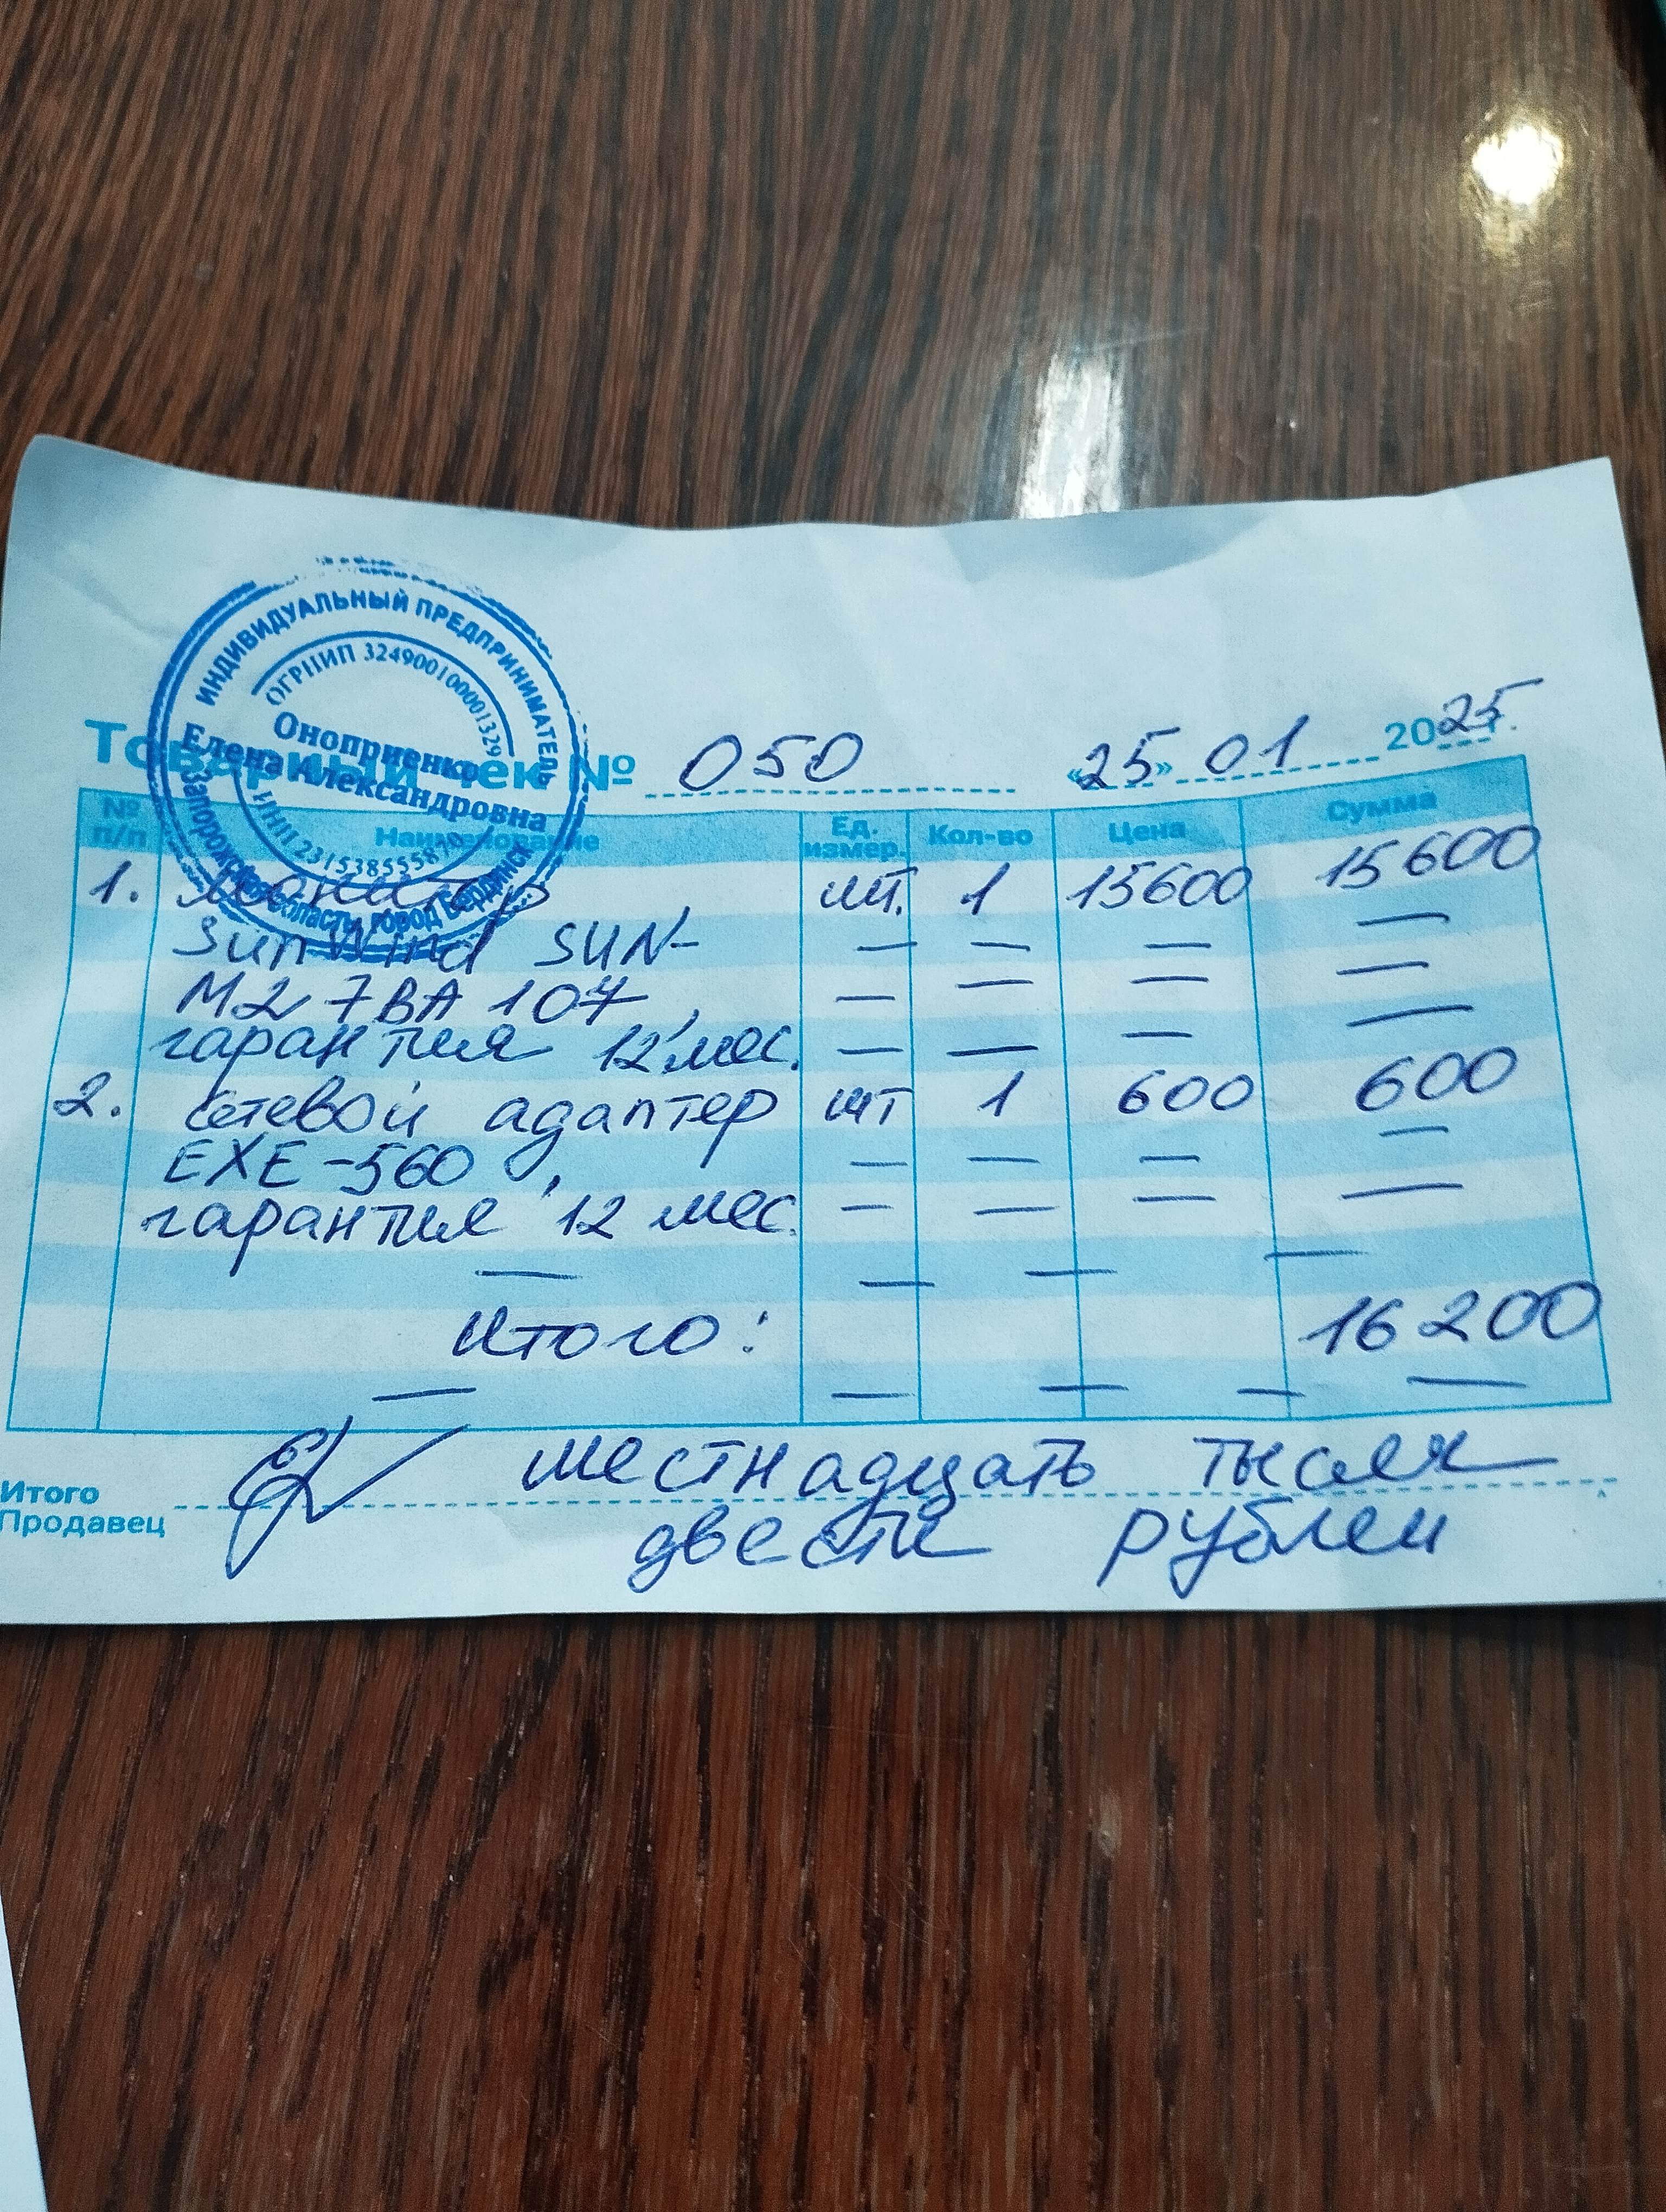 ИНДИВИДУАЛЬНЫЙ ПРЕДПРИНИМАТЕЛЬ
ОГРНИП 324900100001329
Оноприенко
Елена Александровна
ИНН 2315385558
Запорожская область, город Бердянск
Товарный чек № 050 «25» 01 2025г.
№ п/п Наименование Ед. измер. Кол-во Цена Сумма
1. Монитор шт. 1 15600 15600
SunWind SUN- — — — —
M27BA107, — — — —
гарантия 12 мес. — — — —
2. Сетевой адаптер шт 1 600 600
EXE-560, — — — —
гарантия 12 мес. — — — —
— — — —
Итого: 16200
— — — — —
Итого шестнадцать тысяч
Продавец двести рублей